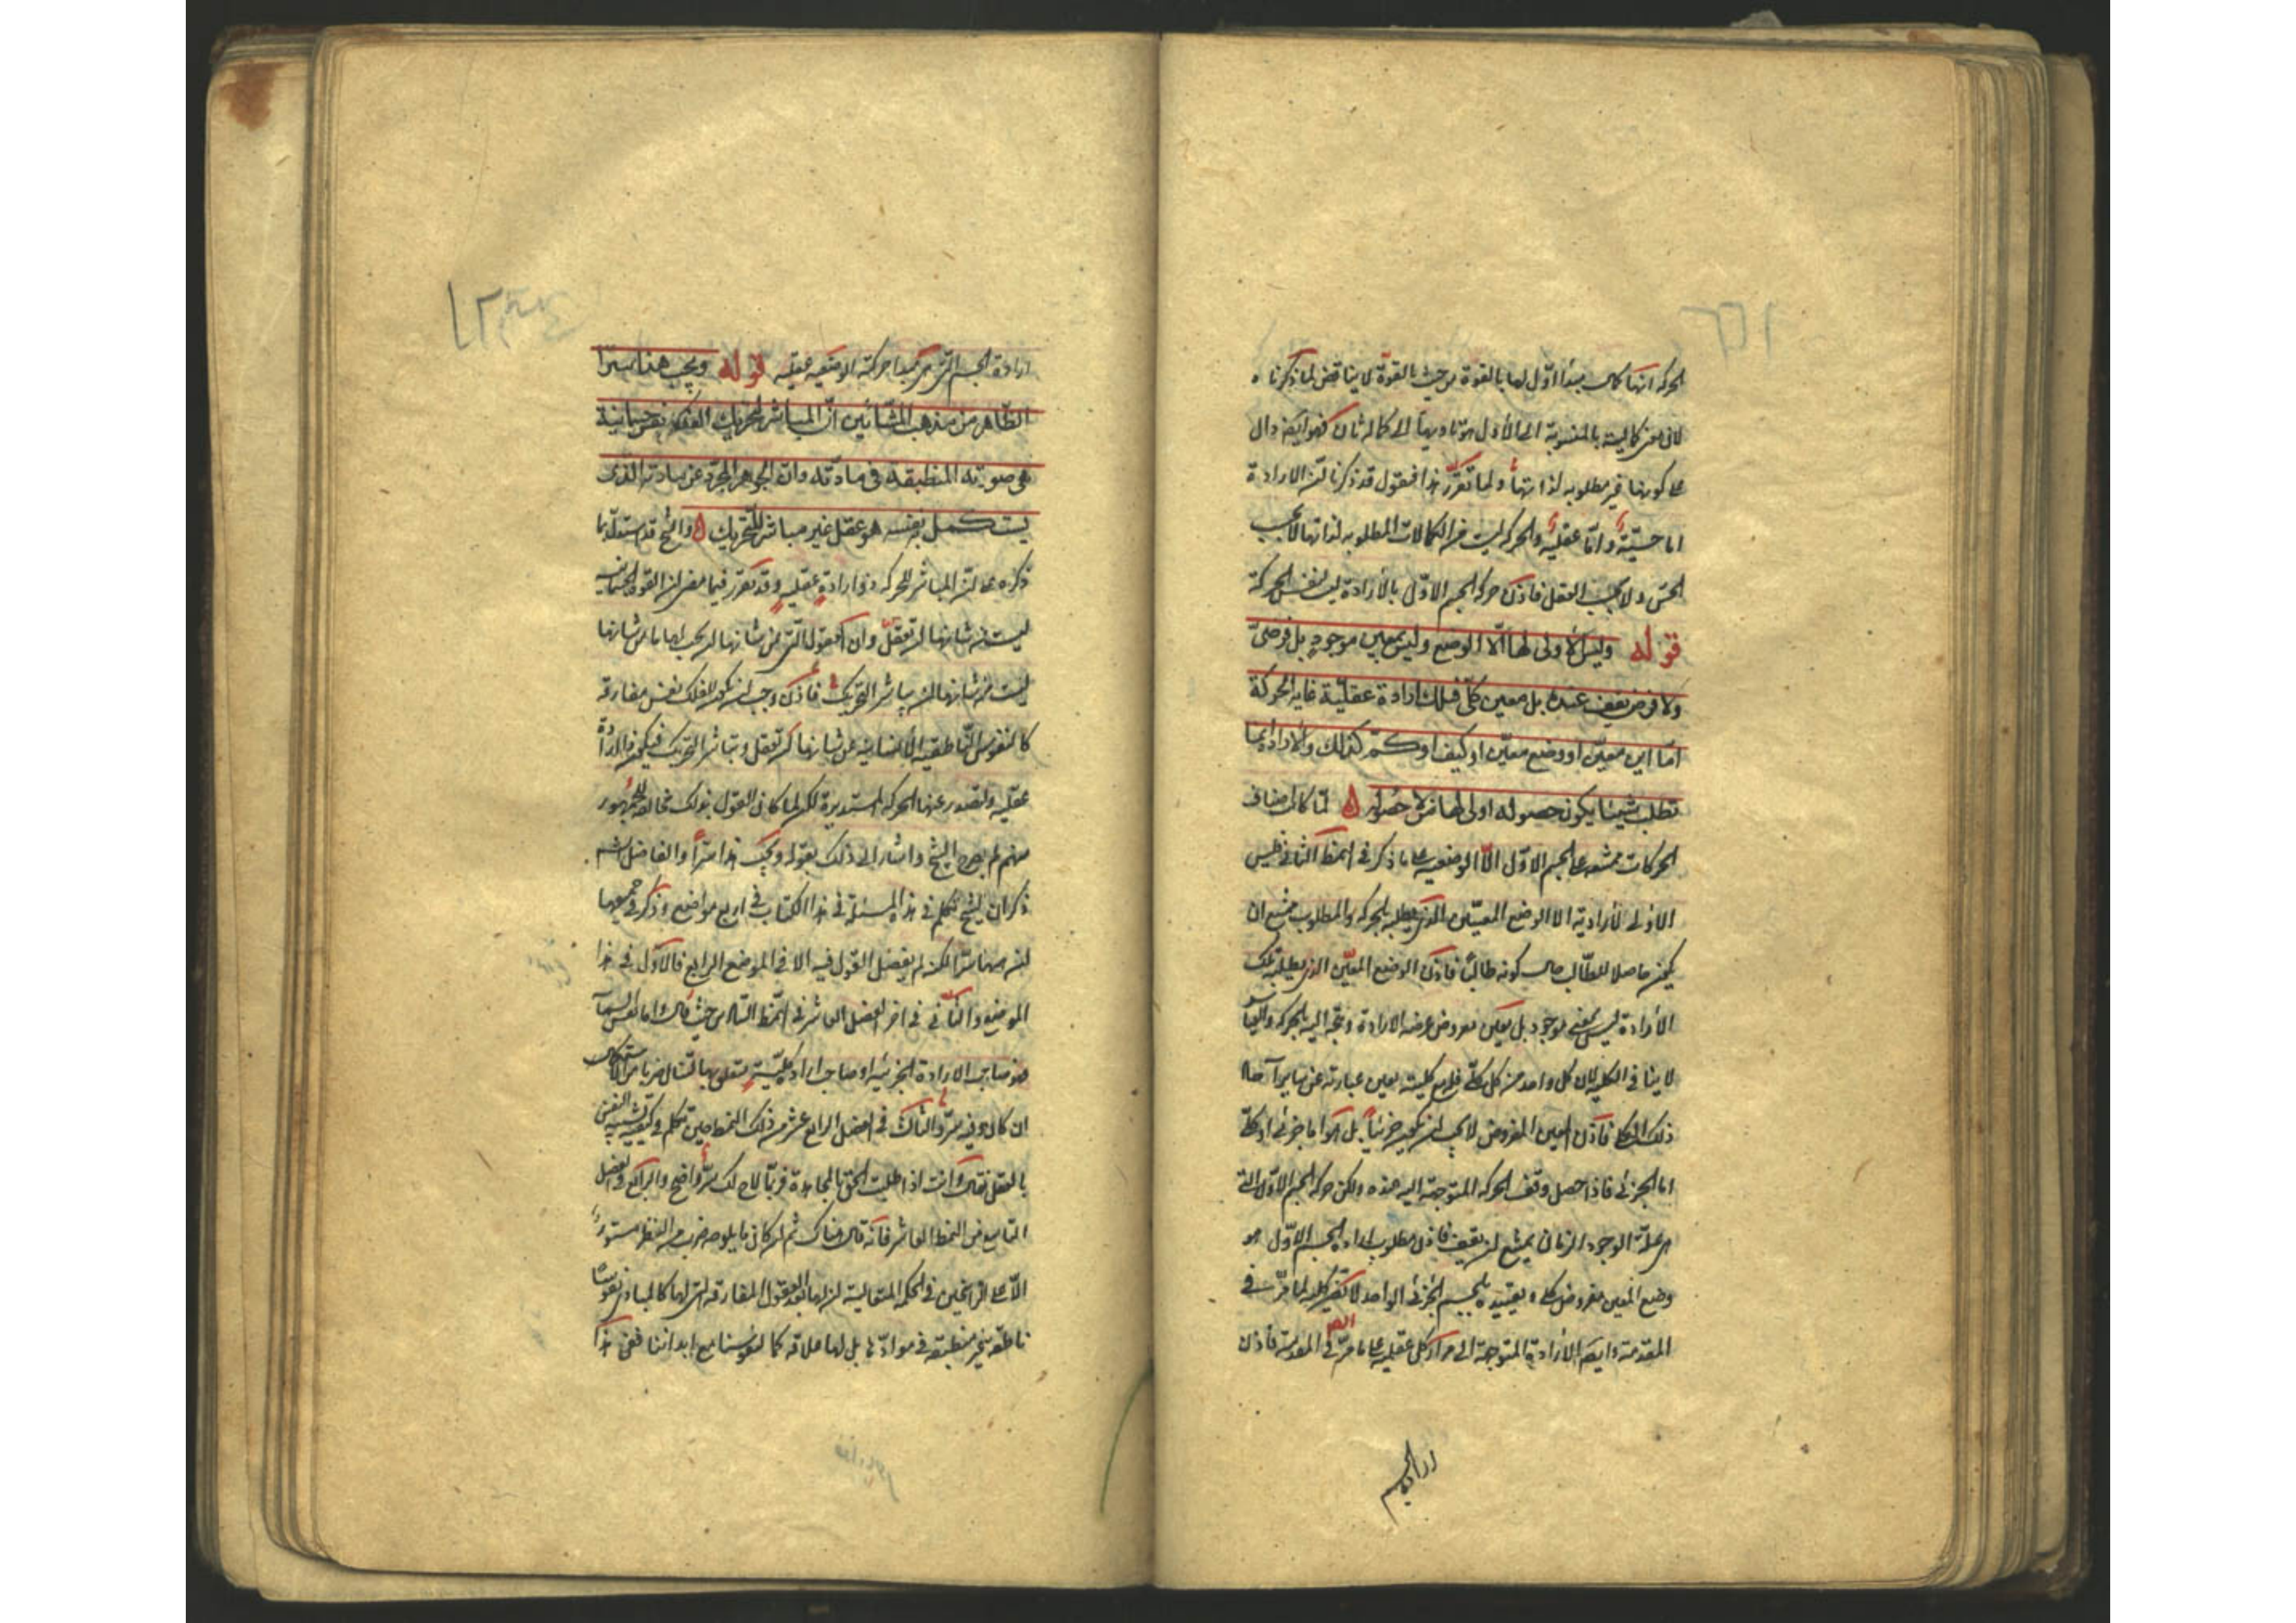 الحركة انها كمال مبدأ اول لها بالقوة من حيث بالقوة لا يناقض لما ذكرناه
لان هى كمالية بالمنسوبة الى الأول هو تأديها الى كمال ثان فهو ايضا دال
على كونها غير مطلوبه لذاتها ولما تقرر هذا فنقول قد ذكرنا ان الارادة
اما حسّيّة واما عقليّة والحركه ليست من الكمالات المطلوبه لذاتها لا بحسب
الحسّ ولا بحسب العقل فاذن حركه الجسم الاوّل بالأرادة ليس لنفس الحركة
قوله وليس الأولى لها الّا الوضع وليس بمعين موجود بل فرضىّ
ولا فرضى يقف عنده بل معين كلّى فتلك ارادة عقليّة غايه الحركة
امّا اين معيّن او وضع معيّن او كيف او كمّ كذلك والارادة انما
تطلب شيئا يكون حصوله اولى لها من لا حصوله لمّا كانت اصناف
الحركات ممتنعه على الجسم الاوّل الّا الوضعيه على ما ذكر فى النمط الثانى فليس
الاولى لأرادته الا الوضع المعيّن الذى يطلبه بالحركه والمطلوب يمتنع ان
يكون حاصلا للطّالب حال كونه طالبا فاذن الوضع المعيّن الذى يطلبه تلك
الأرادة ليس بمعين موجود بل بمعين مفروض تفرضه الارادة وتتجه اليه بالحركه والتعين
لا ينافى الكليه لان كل واحد من كل كلّى فله مع كليته تعين يمتاز به عن سائر آحاد
ذلك الكلى فاذن المعين المفروض لا يجب ان يكون جزئياً بل هو اما جزئى او كلّى
اما الجزئى فاذا حصل وقفت الحركه المتوجهة اليه عنده ولكن حركه الجسم الاوّل التى
هى علة الوجود الزمان يمتنع ان يقف فاذن مطلوب ارادة الجسم الاوّل هو
وضع المعين مفروض كلى وتقييده بالجسم الجزئى الواحد لا يضر كليه لما مرّ فى
المقدمة وايضا الأرادة المتوجهة الى مراد كلى عقليه على ما مرّ فى المقدمة فاذن
ارادة الجسم
ارادة الجسم الاوّل التى هى مبدا حركته الوضعيه عقليه قوله وتحت هذا سرّا
الظّاهر من مذهب المشّائين انّ المباشر لتحريك الفلك نفس جسمانية
هى صورته المنطبقة فى مادّته وانّ الجوهر المجرّد عن مادته الذى
يستكمل به نفسه هو عقل غير مباشر للتحريك والشيخ قد استدلّ بما
ذكره على انّ المباشر للحركه ذو ارادة عقليه وقد تقرر فيما مضى ان القوة الجسمانيه
ليست من شانها ان تعقل وان العقول التى من شانها ان يجب لها ما من شانها
ليست من شانها ان يباشر التحريك فاذن وجب ان يكون للفلك نفس مفارقة
كالنفوس النّاطقيه الأنسانيه من شانها ان تعقل وتباشر التحريك فيكون ذا ارادة
عقليه وتصدر عنها الحركه المستديرة لكن لما كان القول بذلك مخالفا للجمهور
منهم لم يصرح الشيخ واشار الى ذلك بقوله وتحت هذا سرّاً والفاضل الشارح
ذكر ان الشيخ تكلم فى هذه المسئلة فى هذا الكتاب فى اربع مواضع وذكر فى جميعها
ان ههنا سرّا لكنه لم يفصل القول فيه الا فى الموضع الرابع فالاوّل فى هذا
الموضع والثّانى فى اخر الفصل العاشر فى النمط الثالث حيث قال واما نفس السماء
فهو صاحب الارادة الجزئيه او صاحب ارادة كليّة متعلق بها لتنال ضربا من الاستكمال
ان كان وفيه سرّ والثالث فى الفصل الرابع عشر من ذلك النمط حين تكلم فى كيفيه تشبيه النفس
بالعقل فقال وانت اذا طلبت الحق بالمجاهدة فربّما لاح لك سرّ واضح والرابع فى الفصل
التاسع من النمط العاشر فانه قال هناك ثم ان كان ما يلوحه ضرب من النظر مستورا
الّا على الراسخين فى الحكمة المتعالية ان لها بعد العقول المفارقه التى لها كالمبادى نفوسا
ناطقه غير منطبعة فى موادّها بل لها علاقه كما لنفوسنا مع ابداننا ففى هذا